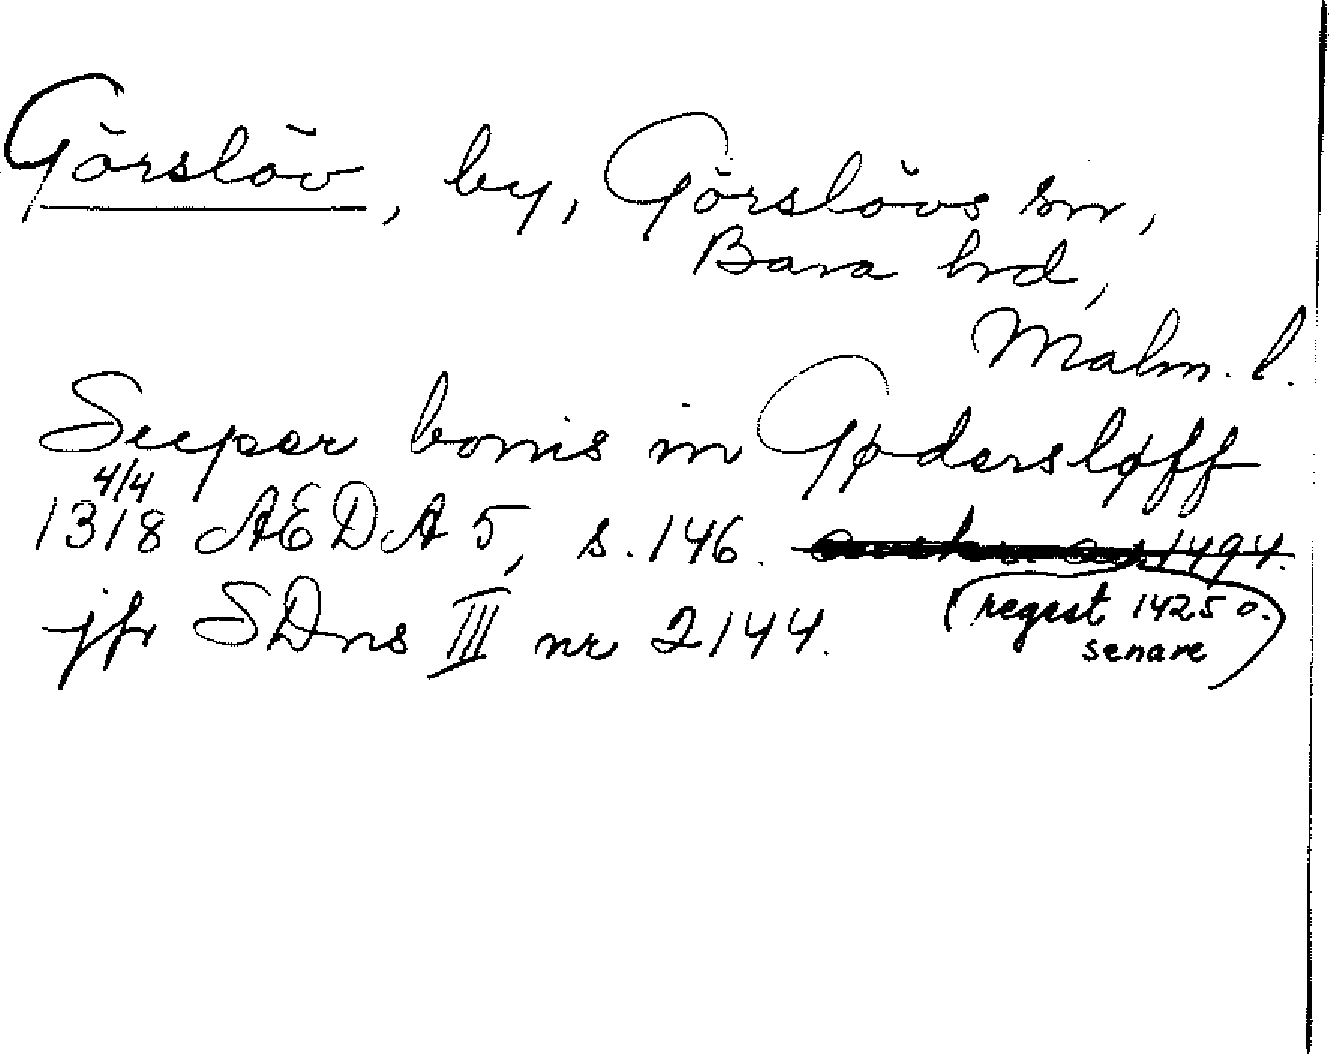 Görslöv, by, Görslövs sn,
Bara hrd,
Malm. l.
Super bonis in Gødersløff
4/4
1318 AEDA 5, s. 146. 1494.
jfr SDns III nr 2144. (regest 1425 o.
senare)